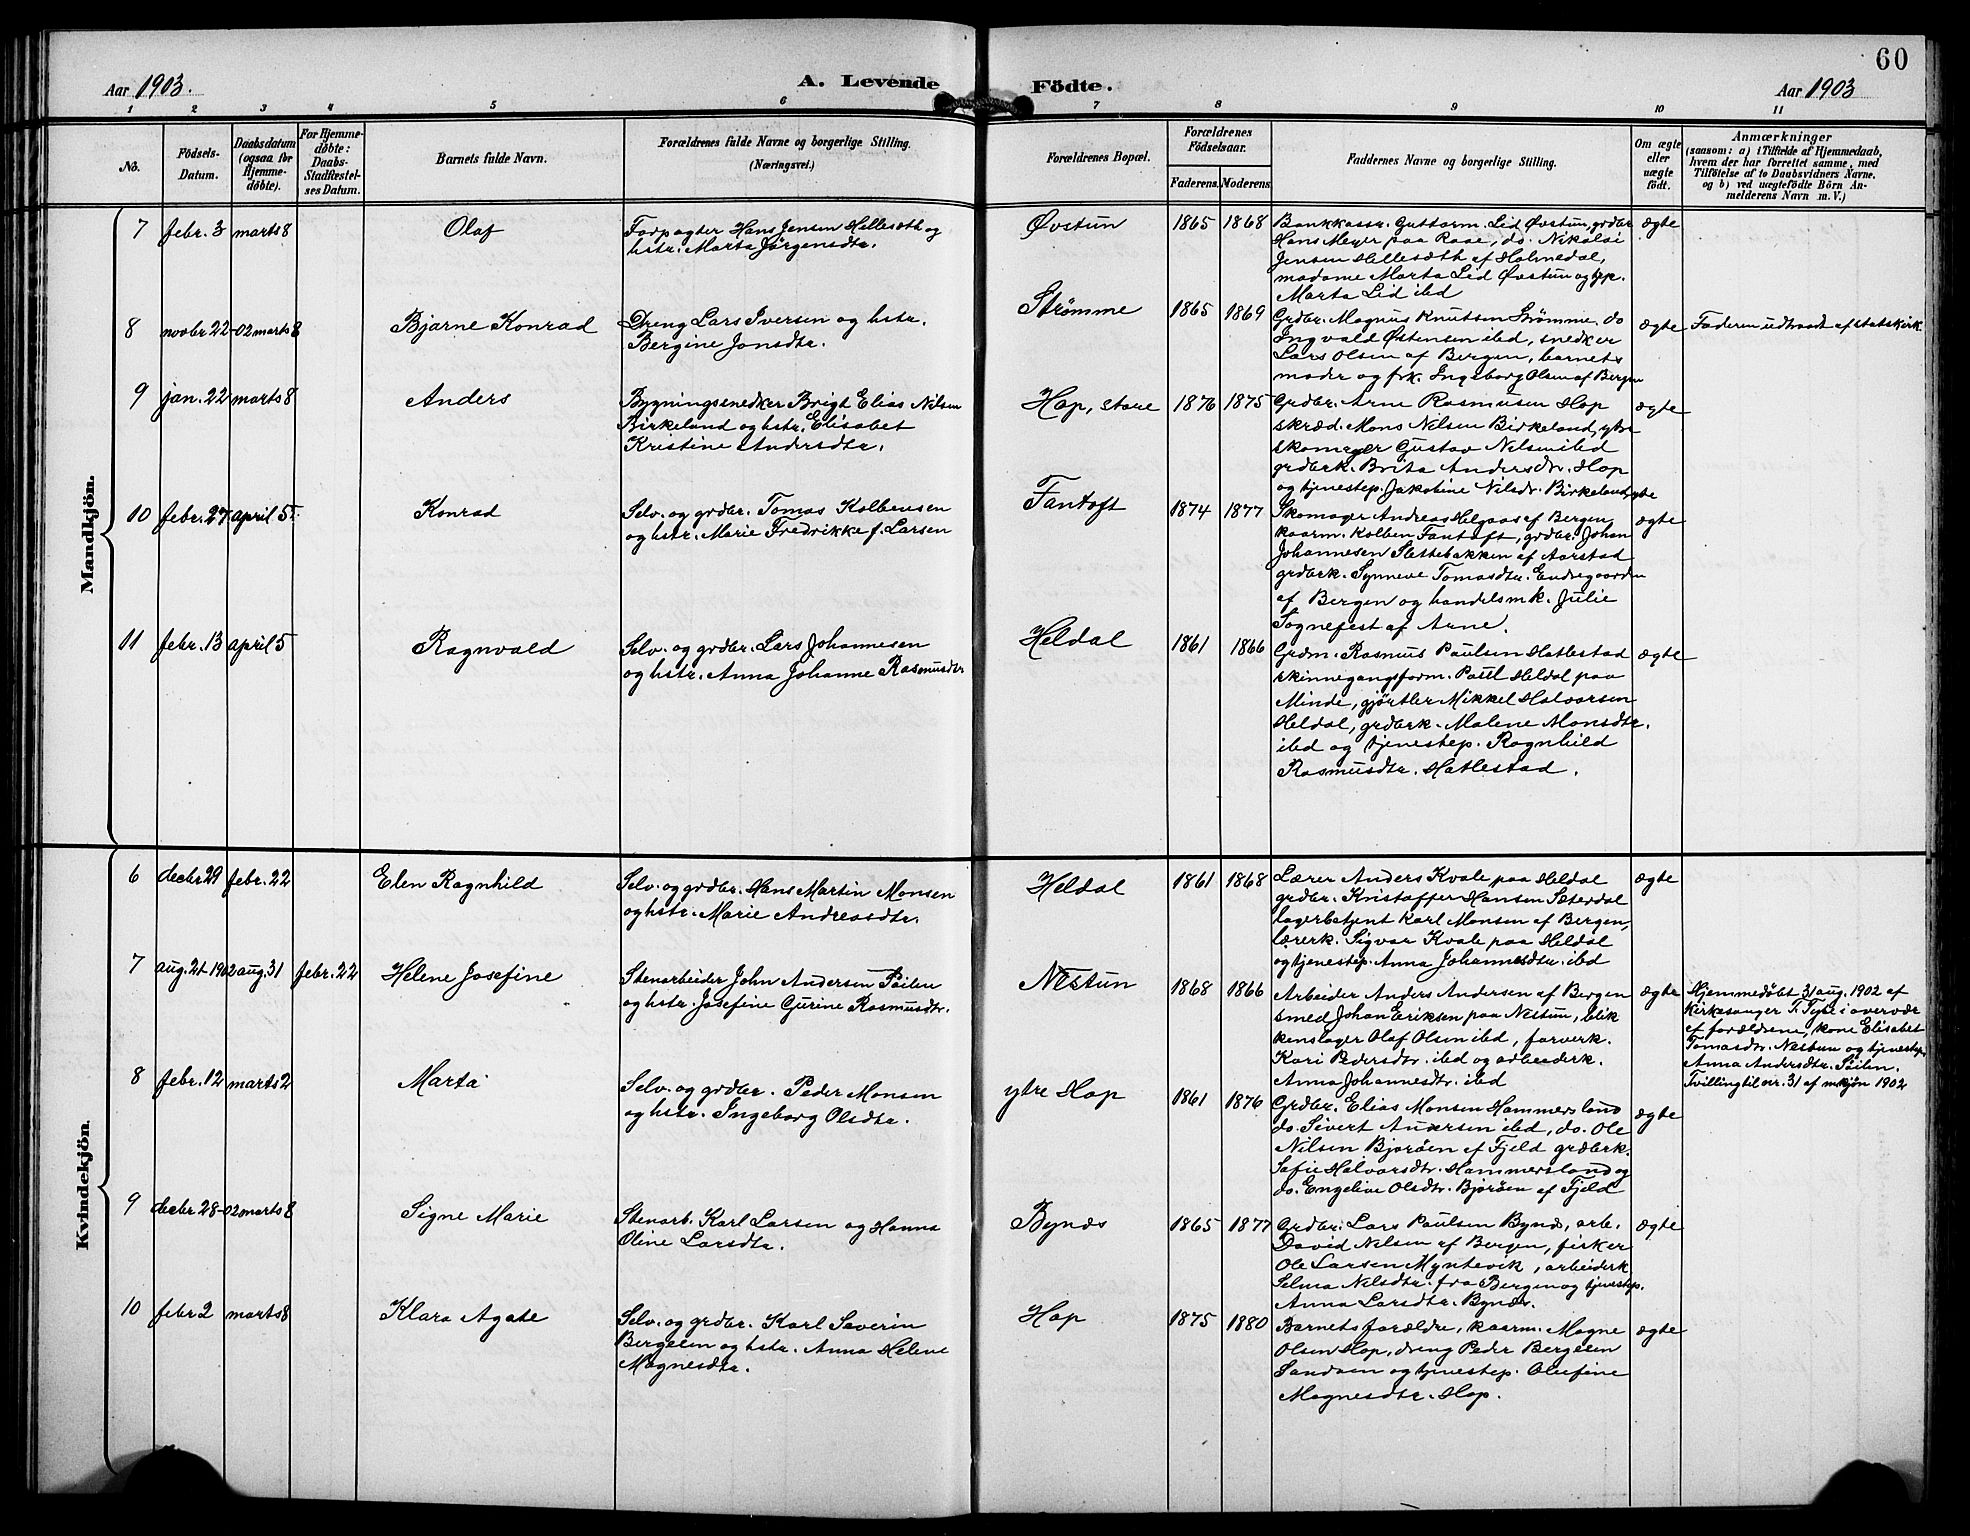 60
Aar 1903.
A. Levende Födte.
Aar 1903
1 2 3 4 5 6 7 8 9 10 11
No.
Födsels-
Datum.
Daabsdatum
(ogsaa for
Hjemme-
døbte).
For Hjemme-
døbte:
Daabs-
Stadfæstel-
ses Datum.
Barnets fulde Navn.
Forældrenes fulde Navne og borgerlige Stilling.
(Næringsvei.)
Forældrenes Bopæl.
Forældrenes
Födselsaar.
Faderens. Moderens.
Faddernes Navne og borgerlige Stilling.
Om ægte
eller
uægte
født.
Anmærkninger
(saasom: a) i Tilfælde af Hjemmedaab,
hvem der har forrettet samme, med
Tilföielse af to Daabsvidners Navne,
og b) ved uægtefödte Börn An-
melderens Navn m. V.)
Mandkjön.
7 febr. 3 marts 8
Olaf
Forpagter Hans Jensen Hellesøth og
hstr. Marta Jørgensdtr.
Øvstun
1865 1868
Bankkassr. Guttorm Lid Øvstun, grdbr
Hans Meyer paa Raae, do. Nikolai
Jensen Hellesæth af Holmedal,
madame Marta Lid Øvstun og tjp.
Marta Lid ibd
ægte
8 novbr 22-02 marts 8
Bjarne Konrad
Dreng Lars Iversen og hstr.
Bergine Jonsdtr.
Strømme
1865 1869
Grdbr. Magnus Knutsen Strømme, do
Ingvald Østensen ibd, snedker
Lars Olsen af Bergen, barnets
moder og frk. Ingeborg Olsen af Bergen
ægte
Faderen udtraadt af statskirk.
9 jan. 22 marts 8
Anders
Bygningssnedker Brigt Elias Nilsen
Birkeland og hstr. Elisabet
Kristine Andersdtr.
Hop, store
1876 1875
Grdbr. Arne Rasmusen Hop
skræd. Mons Nilsen Birkeland, ytre
skomager Gustav Nilsen ibd
grdbrk. Brita Andersdr. Hop
og tjenestep. Jakobine Nilsdr. Birkeland, ytre
ægte
10 febr. 27 april 5.
Konrad
Selv. og grdbr. Tomas Kolbensen
og hstr. Marie Fredrikke f. Larsen
Fantoft
1874 1877
Skomager Andreas Helgaas af Bergen
kaarm. Kolben Fantoft, grdbr. Johan
Johannesen Slettebakken af Aarstad
grdbrk. Synneve Tomasdtr. Endregaarden
af Bergen og handelsmk. Julie
Sognefest af Arne.
ægte
11 febr. 13 april 5
Ragnvald
Selv. og grdbr. Lars Johannesen
og hstr. Anna Johanne Rasmusdtr
Heldal
1861 1866
Grdm. Rasmus Paulsen Hatlestad
skinnegangsform. Paul Heldal paa
Minde, gjørtler Mikkel Halvorsen
Heldal, grdbrk. Malene Monsdtr.
ibd og tjenestep. Ragnhild
Rasmusdtr. Hatlestad.
ægte
Kvindekjön.
6 decbr 29 febr. 22
Elen Ragnhild
Selv. og grdbr. Hans Martin Monsen
og hstr. Marie Andreasdtr.
Heldal
1861 1868
Lærer Anders Kvale paa Heldal
grdbr. Kristoffer Hansen Sæterdal
lagerbetjent Karl Monsen af Bergen,
lærerk. Sigvor Kvale paa Heldal
og tjenestep. Anna Johannesdtr. ibd
ægte
7 aug. 21 1902 aug. 31 febr. 22
Helene Josefine
Stenarbeider John Andersen Söilen
og hstr. Josefine Gurine Rasmusdtr.
Nestun
1868 1866
Arbeider Anders Andersen af Bergen
smed Johan Eriksen paa Nestun, blik
kenslager Olaf Olsen ibd, farverk.
Kari Pedersdtr. ibd og arbeiderk.
Anna Johannesdtr. ibd
ægte
Hjemmedøbt 31 aug. 1902 af
Kirkesanger T. Tyse i overvær
af forældrene, kone Elisabet
Tomasdtr. Nestun og tjenestep.
Anna Andersdtr. Söilen.
Tvilling til nr. 31 af mkjön 1902
8 febr. 12 marts 2
Marta
Selv. og grdbr. Peder Monsen
og hstr. Ingeborg Olsdtr.
ytre Hop
1861 1876
Grdbr. Elias Monsen Hammersland
do. Sivert Andersen ibd, do. Ole
Nilsen Bjorøen af Fjeld grdbrk.
Sofie Halvorsdtr. Hammersland og
do. Engeline Olsdtr. Bjorøen af Fjeld
ægte
9 decbr 28-02 marts 8
Signe Marie
Stenarb. Karl Larsen og Hanna
Oline Larsdtr.
Bynes
1865 1877
Grdbr. Lars Paulsen Bynes, arb.
David Nilsen af Bergen, fisker
Ole Larsen Myntevik, arbeiderk
Selma Nilsdtr. fra Bergen og tjenestep.
Anna Larsdtr. Bynes.
ægte
10 febr 2 marts 8
Klara Agate
Selv. og grdbr. Karl Severin
Bergesen og hstr. Anna Helene
Magnesdtr.
Hop
1875 1880
Barnets forældre, kaarm. Magne
Olsen Hop, dreng Peder Bergesen
Sandven og tjenestep. Olufine
Magnesdtr. Hop.
ægte